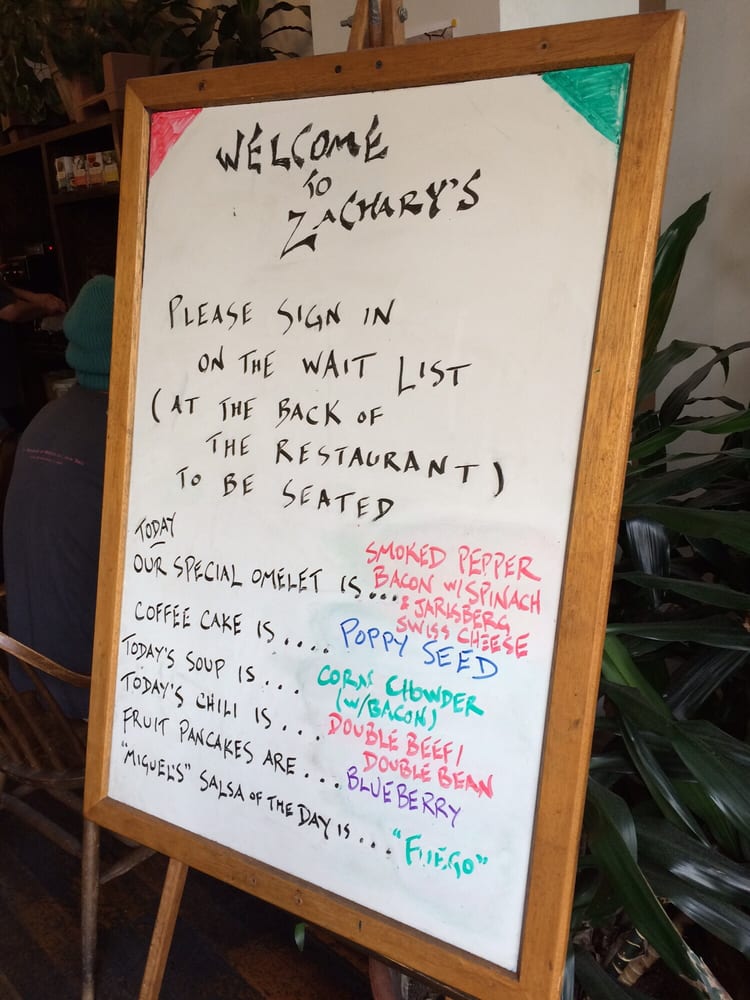 WELCOME
TO
ZACHARY'S
PLEASE SIGN IN
ON THE WAIT LIST
(AT THE BACK OF
THE RESTAURANT)
TO BE SEATED
TODAY
OUR SPECIAL OMELET IS... SMOKED PEPPER
BACON W/SPINACH
& JARLSBERG
SWISS CHEESE
COFFEE CAKE IS .... POPPY SEED
TODAY'S SOUP IS ... CORN CHOWDER
(W/BACON)
TODAY'S CHILI IS ... DOUBLE BEEF/
DOUBLE BEAN
FRUIT PANCAKES ARE ... BLUEBERRY
"MIGUEL'S" SALSA OF THE DAY IS ... "FUEGO"